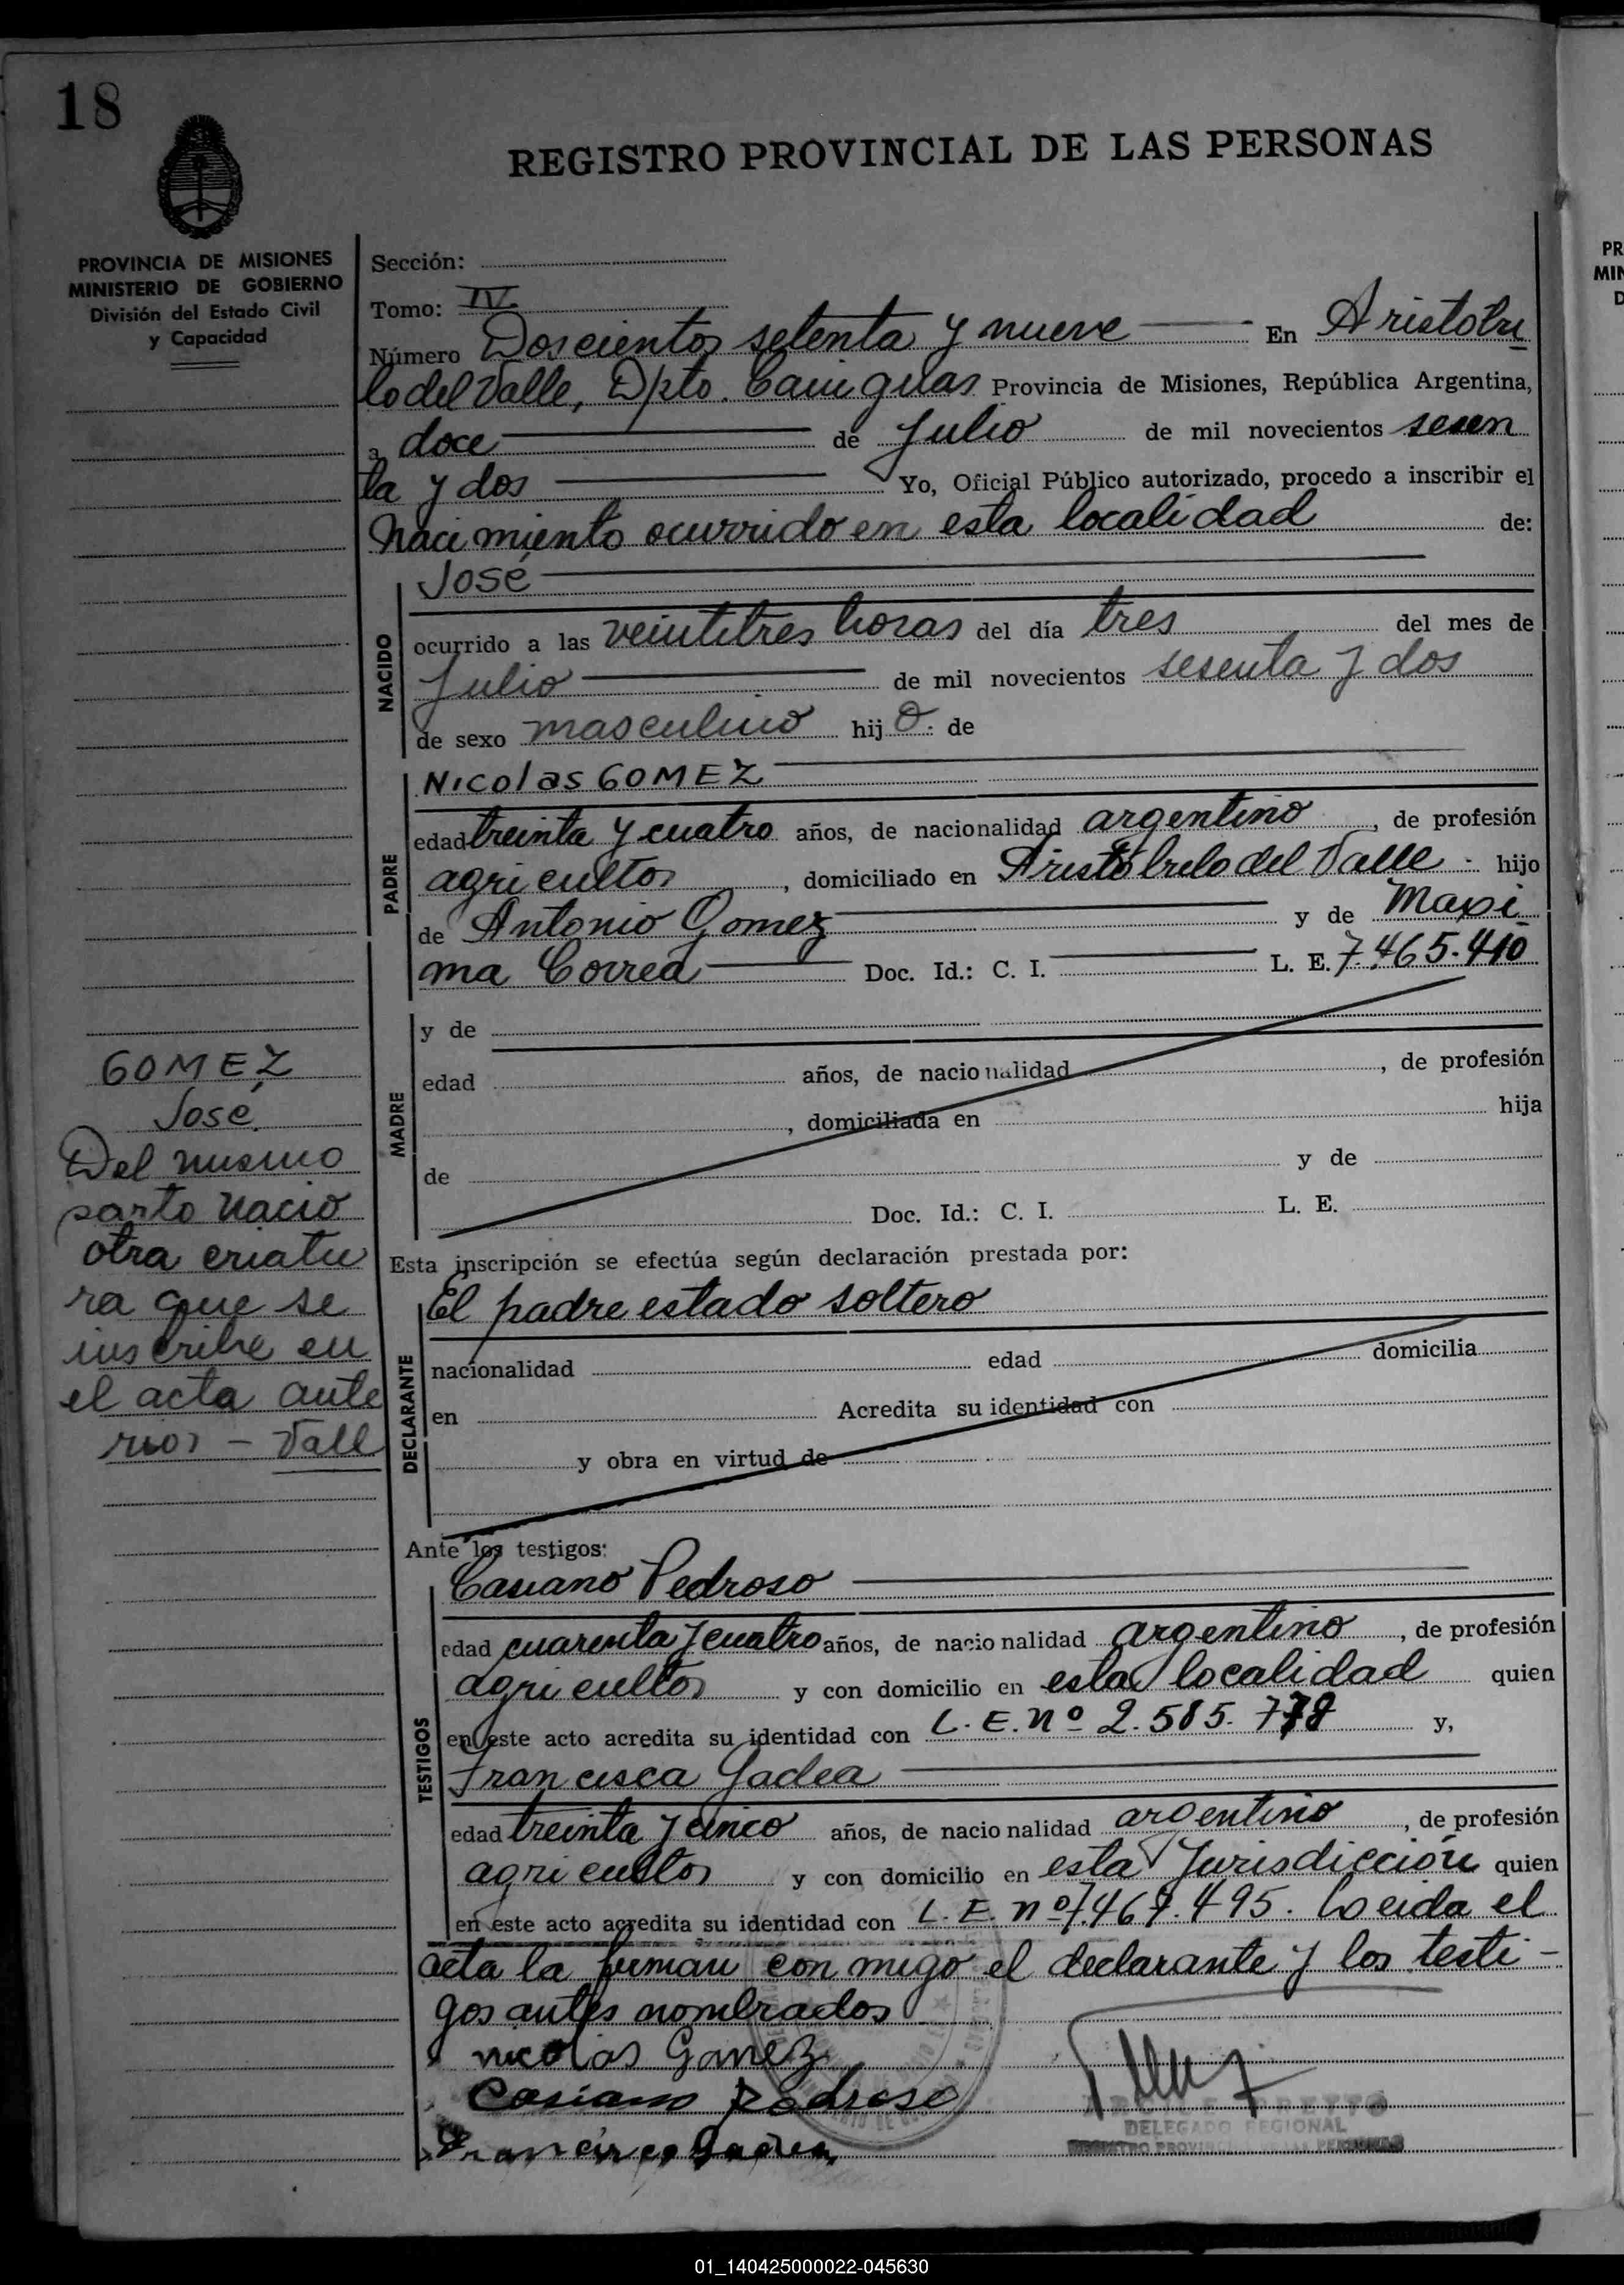 18
REGISTRO PROVINCIAL DE LAS PERSONAS
PROVINCIA DE MISIONES
MINISTERIO DE GOBIERNO
División del Estado Civil
y Capacidad
Sección:
Tomo: IV
Número Doscientos setenta y nueve En Aristobu
lo del Valle, Dpto. Cainguas Provincia de Misiones, República Argentina,
a doce de Julio de mil novecientos sesen
ta y dos Yo, Oficial Público autorizado, procedo a inscribir el
Nacimiento ocurrido en esta localidad de:
NACIDO
José
ocurrido a las veintitres horas del día tres del mes de
Julio de mil novecientos sesenta y dos
de sexo masculino hij o. de
PADRE
Nicolas GOMEZ
edad treinta y cuatro años, de nacionalidad argentino, de profesión
agricultor, domiciliado en Aristóbulo del Valle - hijo
de Antonio Gomez y de Maxi
ma Correa Doc. Id.: C. I. L. E. 7.465.410
MADRE
y de
edad años, de nacionalidad, de profesión
, domiciliada en hija
de y de
Doc. Id.: C. I. L. E.
GOMEZ
José.
Del mismo
parto nacio
otra criatu
ra que se
inscribe en
el acta ante
rior - Vall
Esta inscripción se efectúa según declaración prestada por:
DECLARANTE
El padre estado soltero
nacionalidad edad domicilia
en Acredita su identidad con
y obra en virtud de
Ante los testigos:
TESTIGOS
Casiano Pedroso
edad cuarenta y cuatro años, de nacionalidad argentino, de profesión
agricultor y con domicilio en esta localidad quien
en este acto acredita su identidad con L. E. nº 2.585. y,
Francisca Gadea
edad treinta y cinco años, de nacionalidad argentino, de profesión
agricultor y con domicilio en esta Jurisdicción quien
en este acto acredita su identidad con L. E. nº 7.467.495. Leida el
acta la firman con migo el declarante y los testi-
gos antes nombrados
nicolas Gomez
Casiano Pedroso
Francisco Gadea
DELEGADO REGIONAL
REGISTRO PROVINCIAL DE LAS PERSONAS
PR
MIN
D
01_140425000022-045630